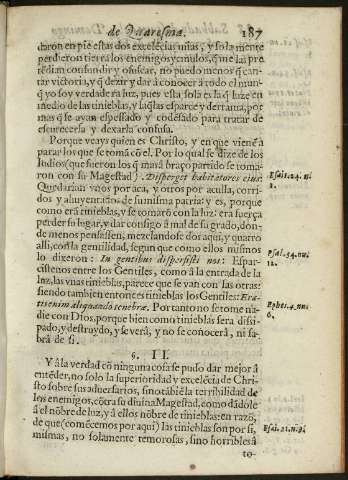 de Quaresma. 187
daron en pie estas dos excelẽcias mias, y sola mente
perdieron tierra los enemigos y emulos, q̃ me las pre
tẽdian confundir y ofuscar, no puedo menos q̃ can-
tar victoria, y q̃ dezir y dar à conocer à todo el mun-
q̃ yo soy verdadera luz, pues esta sola es la q̃ luze en
medio de las tinieblas, y la q̃ las esparce y derrama, por
mas q̃ se ayan espessado y codensado para tratar de
escurecerla y dexarla confusa.
Porque veays quien es Christo, y en que vienẽ à
parar los que se tomã cõ el. Por lo qual se dize de los
Iudios (que fueron los q̃ mas à braço partido se toma-
ron con su Magestad) Disperget habitatores eius:
Esai. 24. nu
1.
Quedarian vnos por aca, y otros por aculla, corri-
dos y ahuyentados de su misma patria: y es, porque
como erã tinieblas, y se tomarõ con la luz: era fuerça
perder su lugar, y dar consigo à mal de su grado, don-
de menos pensassen, mezclandose dos aqui, y quatro
alli, con la gentilidad, segun que como ellos mismos
lo dixeron: In gentibus dispersisti nos: Espar-
Psal. 54. nu.
12.
cistenos entre los Gentiles, como à la entrada de la
luz, las vnas tinieblas, parece que se van con las otras:
siendo tambien entonces tinieblas los Gentiles: Era-
tis enim aliquando tenebræ. Por tanto no se tome na-
Ephes. 4. nu.
6.
die con Dios, porque bien como tinieblas sera dissi-
pado, y destroydo, y se verà, y no se conocerà, ni sa-
brà de si.
§. II.
Y à la verdad cõ ninguna cosa se pudo dar mejor à
entẽder, no solo la superioridad y excelẽcia de Chri-
sto sobre sus aduersarios, sino tãbiẽ la terribilidad de
los enemigos, cõtra su diuina Magestad, como dãdole
à el nõbre de luz, y à ellos nõbre de tinieblas: en razõ,
de que (comẽcemos por aqui) las tinieblas son por si
Esai. 21. n. 9.
mismas, no solamente temorosas, sino horribles à
to-